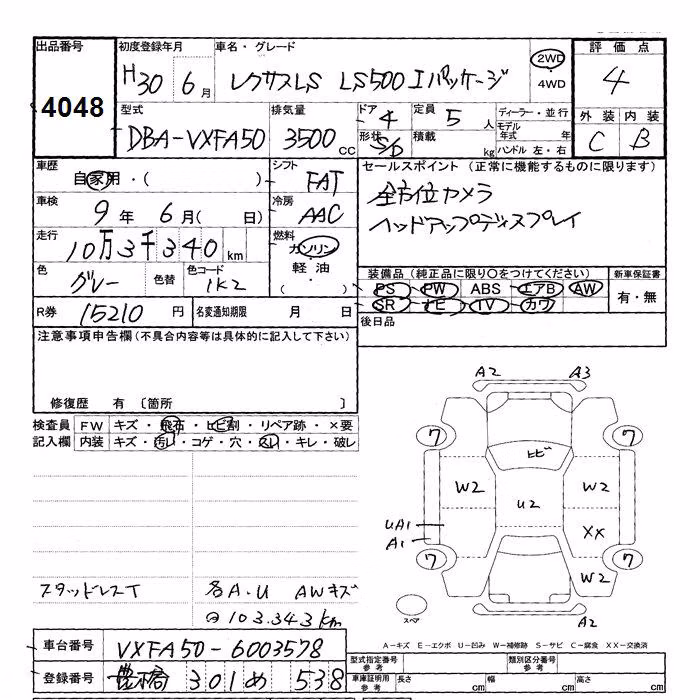 出品番号 初度登録年月 車名・グレード 評価点
4048 H30 6月 レクサスLS LS500 Iパッケージ 2WD ・ 4WD 4
型式 排気量 ドア 4 定員 5人 ディーラー・並行 外装 内装
DBA-VXFA50 3500cc 形状 S/D 積載 kg モデル年式 年 ハンドル 左・右 C B
車歴 自家用・( ) シフト FAT セールスポイント (正常に機能するものに限ります)
車検 9年 6月( 日) 冷房 AAC 全方位カメラ
走行 10万3千340km 燃料 ガソリン ヘッドアップディスプレイ
軽油・( )
色 グレー 色替 色コード 1K2 装備品 (純正品に限り○をつけてください) 新車保証書
PS PW ABS エアB AW 有・無
SR ナビ TV カワ
R券 15210円 名変通知期限 月 日 後日品
注意事項申告欄 (不具合内容等は具体的に記入して下さい)
修復歴 有 〔箇所 〕
検査員 FW キズ・飛石・ヒビ割・リペア跡・×要
記入欄 内装 キズ・汚レ・コゲ・穴・スレ・キレ・破レ
A2 A3
7 7
ヒビ
W2 U2 W2
UA1 XX
A1
7 7
W2
スペア A2
スタッドレスT 各A・U AWキズ
103.343km
A-キズ E-エクボ U-凹み W-補修跡 S-サビ C-腐食 XX-交換済
車台番号 VXFA50-6003578
登録番号 豊橋 301 め 538
型式指定番号 参考 類別区分番号 参考
車庫証明用 参考 長さ cm 幅 cm 高さ cm